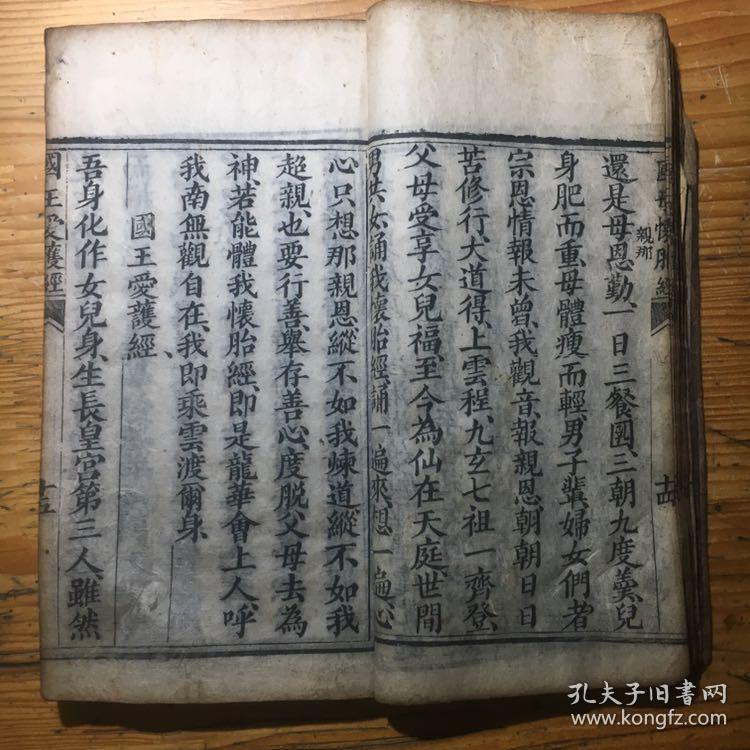 國母懷胎經 十四
還是母恩勤、一日三餐團、三朝九度羹、兒
親那
身肥而重、母體瘦而輕、男子輩、婦女們、者
宗恩情報未曾、我觀音、報親恩、朝朝日日
苦修行、大道得、上雲程、九玄七祖一齊登、
父母受享女兒福、至今為仙在天庭、世間
男共女、誦我懷胎經、誦一遍來想一遍、心
心只想那親恩、縱不如我煉道、縱不如我
超親、也要行善舉、存善心、度脫父母去為
神、若能體我懷胎經、即是龍華會上人、呼
我南無觀自在、我即乘雲渡爾身、
國王愛護經、
吾身化作女兒身、生長皇宮第三人、雖然
國王愛護經 十五
孔夫子旧书网
www.kongfz.com